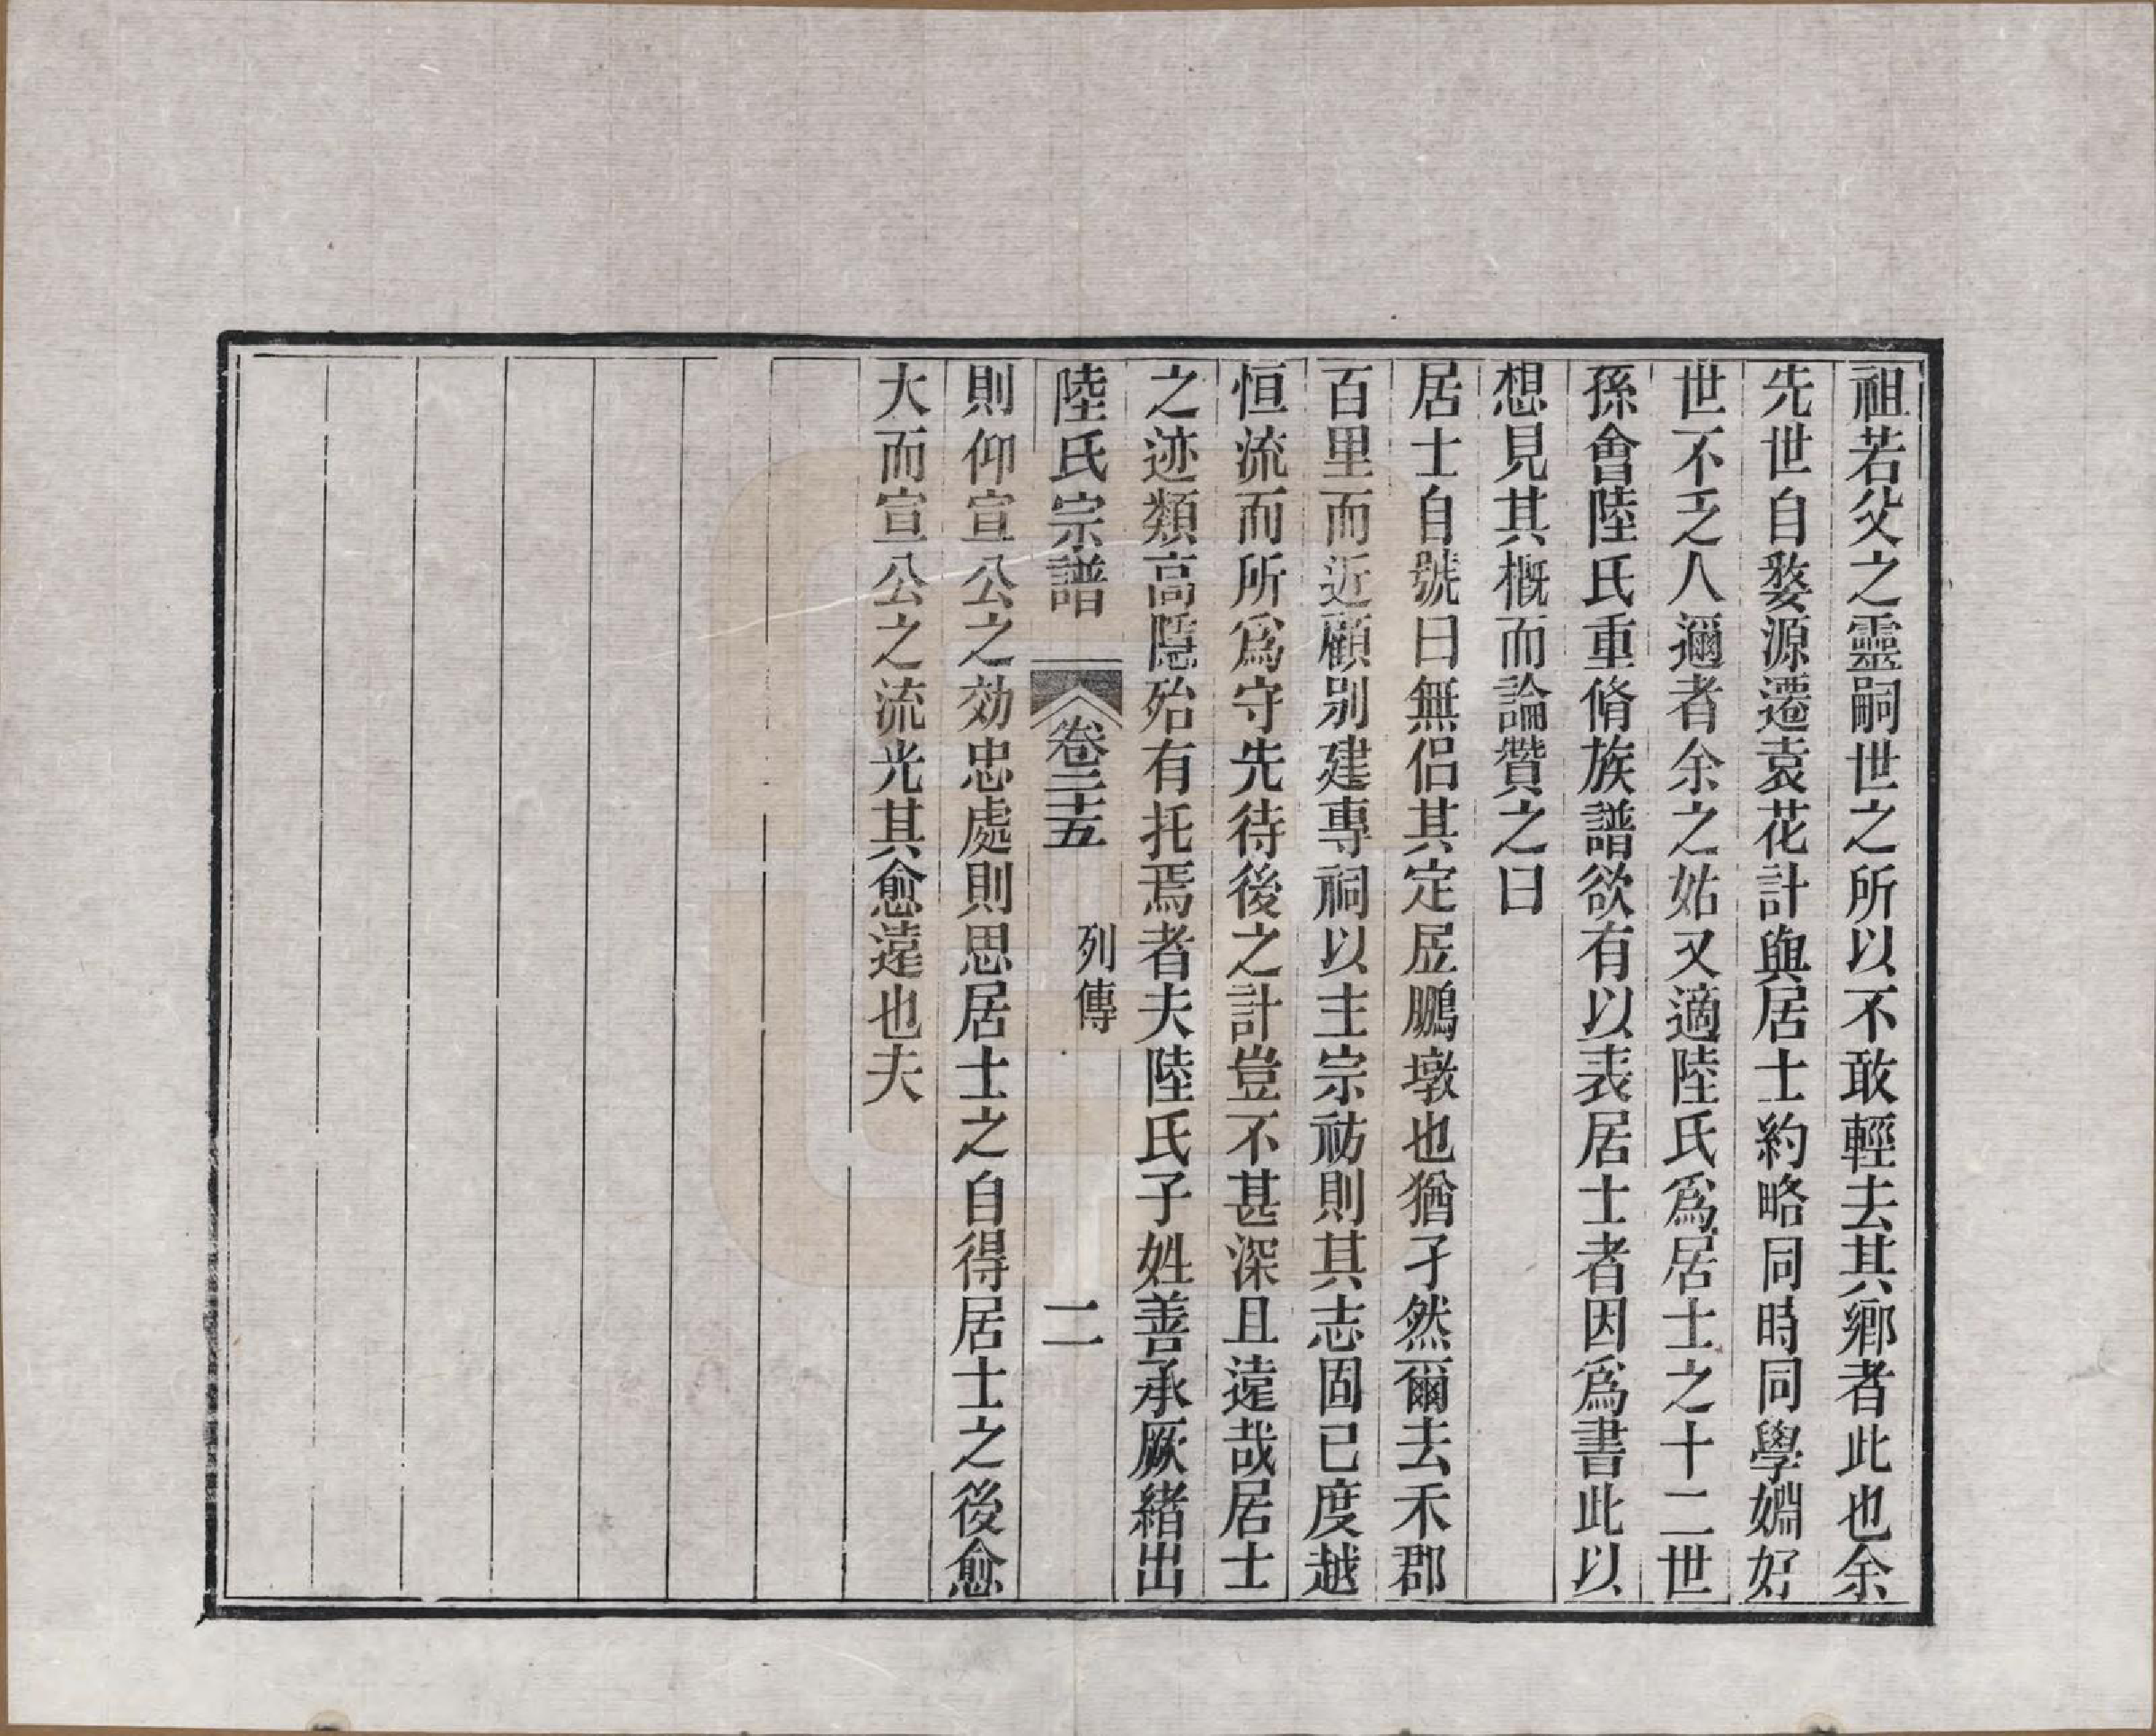 祖若父之靈嗣世之所以不敢輕去其鄉者此也余
先世自婺源遷袁花計與居士約略同時同學婣好
世不乏人邇者余之姑又適陸氏爲居士之十二世
孫會陸氏重脩族譜欲有以表居士者因爲書此以
想見其槪而論贊之曰
居士自號曰無侶其定居鵬墩也猶孑然爾去禾郡
百里而近顧別建專祠以主宗祊則其志固已度越
恒流而所爲守先待後之計豈不甚深且遠哉居士
之迹類高隱殆有托焉者夫陸氏子姓善承厥緒出
陸氏宗譜 卷二十五 列傳 二
則仰宣公之効忠處則思居士之自得居士之後愈
大而宣公之流光其愈遠也夫